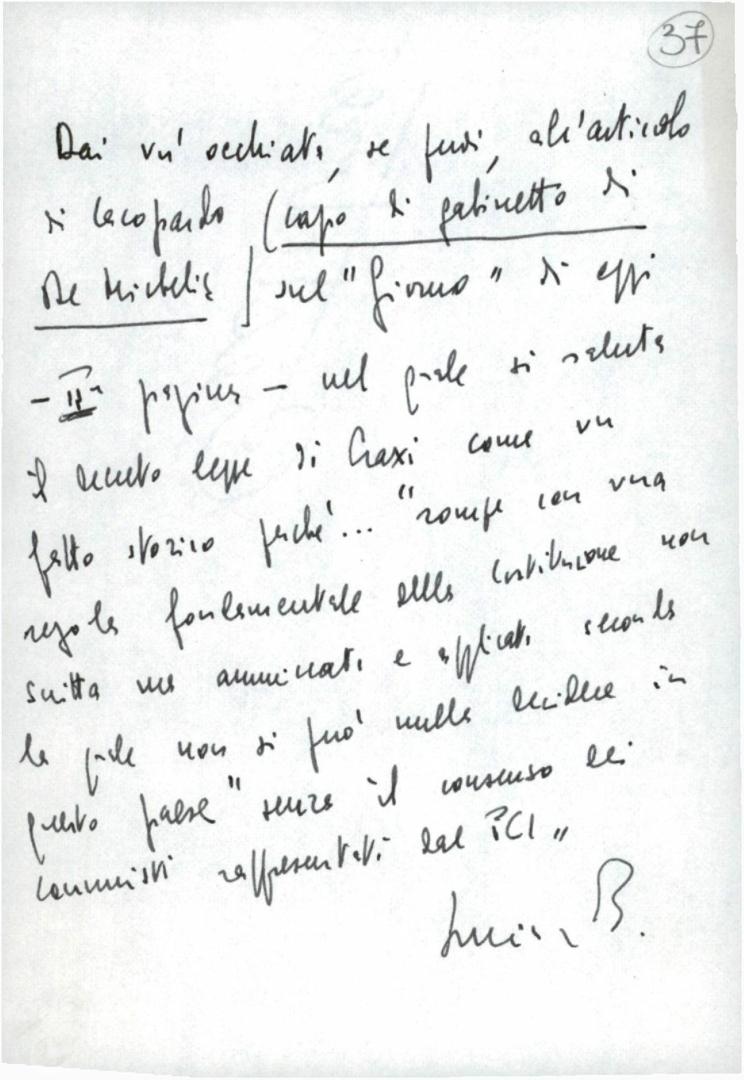 37
Dai un' occhiata, se puoi, all'articolo
di Iacopardo (capo di gabinetto di
De Michelis) sul "Giorno" di oggi
- IIª pagina - nel quale si saluta
il decreto legge di Craxi come un
fatto storico perché... "rompe con una
regola fondamentale della Costituzione non
scritta ma ammirata e applicata secondo
la quale non si può nulla decidere in
questo paese" senza il consenso dei
comunisti rappresentati dal PCI"
B.